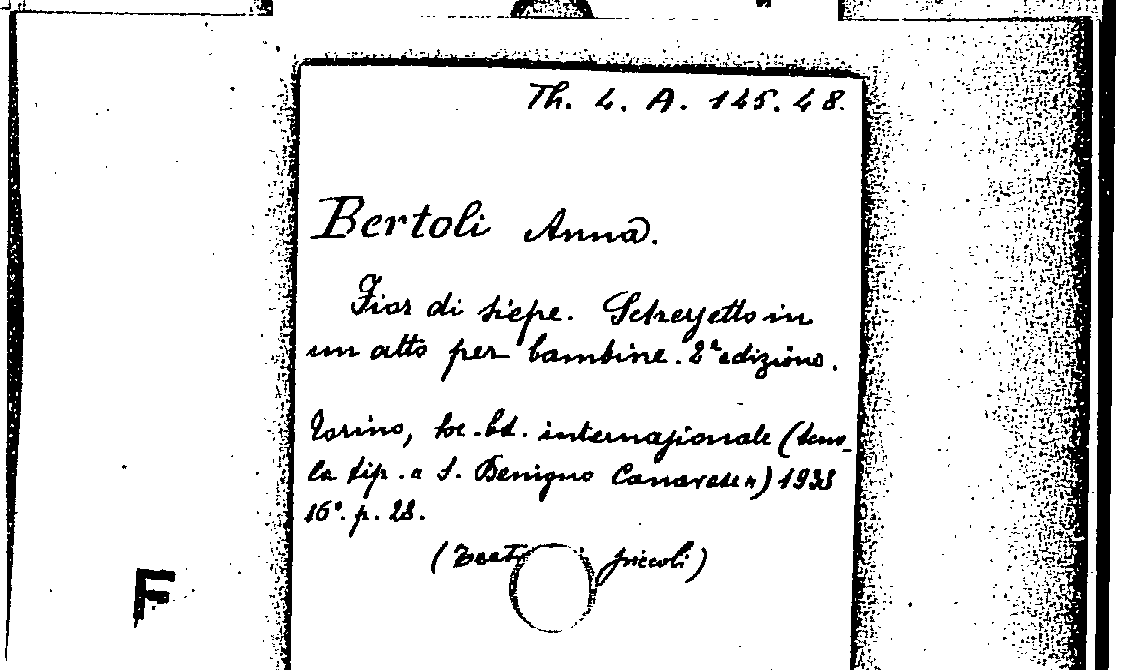 Th. 4. A. 145. 48.
Bertoli Anna.
Fior di siepe. Scherzetto in
un atto per bambine. 2ª edizione.
Torino, Soc. Ed. internazionale (Scuo-
la tip. a S. Benigno Canavese) 1933
16°. p. 28.
( piccoli)
F